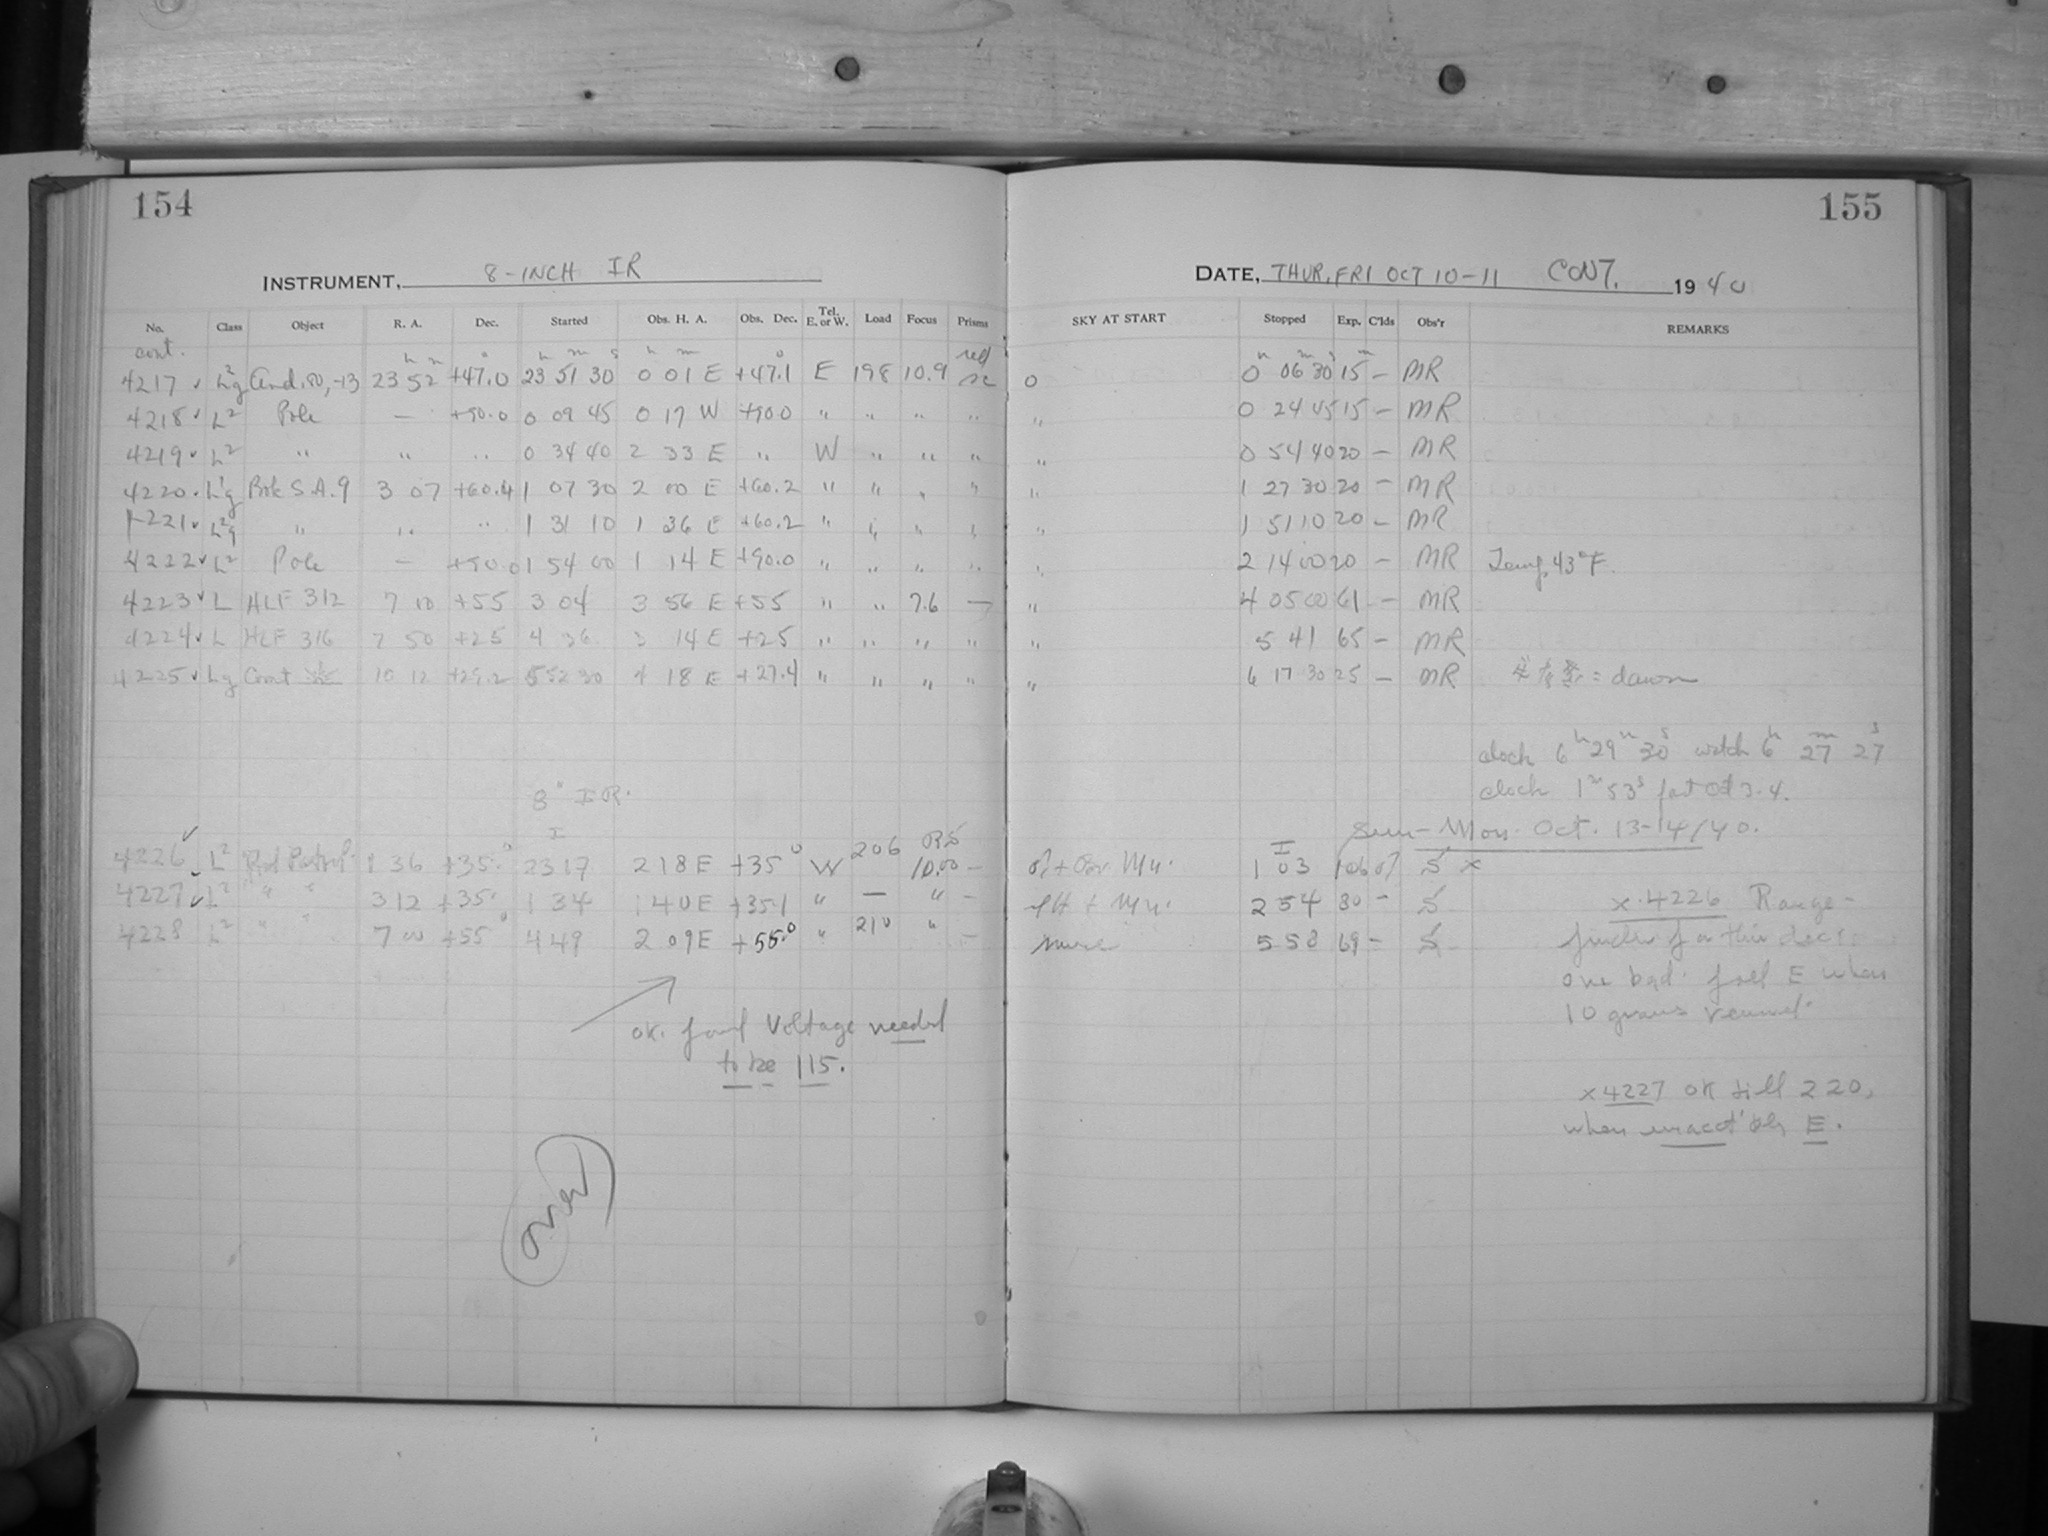 154
INSTRUMENT, 8-INCH IR
No. Class Object R. A. Dec. Started Obs. H. A. Obs. Dec. Tel. E. or W. Load Focus Prisms
cont. h m ° h m s h m ° red
4217 ✓ L²g And. 80, -13 23 52 +47.0 23 51 30 0 01 E +47.1 E 198 10.9
4218 ✓ L² Pole — +90.0 0 09 45 0 17 W +90.0 " " " "
4219 ✓ L² " " " 0 34 40 2 33 E " W " " "
4220 S.A. 9 3 07 +60.4 1 07 30 2 00 E +60.2 " " " "
4221 ✓ L²g " " " 1 31 10 1 36 E +60.2 " " " "
4222 ✓ L² Pole — +90.0 1 54 00 1 14 E +90.0 " " " "
4223 ✓ L HLF 312 7 10 +55 3 04 3 56 E +55 " " 7.6 —
4224 ✓ L HLF 316 7 50 +25 4 36 3 14 E +25 " " " "
4225 ✓ Lg 10 12 +29.2 5 52 30 4 18 E +27.4 " " " "
8" IR.
I
4226 ✓ L² Red Patrol 1 36 +35.° 23 17 2 18 E +35° W 206 10.00 —
4227 ✓ L² " " 3 12 +35. 1 34 1 40 E +35.1 " — " —
4228 L² " " 7 00 +55° 4 49 2 09 E +55.° " 210 " —
OK. found Voltage needed
to be 115.
over
155
DATE, THUR, FRI OCT 10-11 CONT. 1940
SKY AT START Stopped Exp. C'lds Obs'r REMARKS
h m s m
0 0 06 30 15 — MR
" 0 24 45 15 — MR
" 0 54 40 20 — MR
" 1 27 30 20 — MR
" 1 51 10 20 — MR
" 2 14 00 20 — MR Temp. 43°F.
" 4 05 00 61 — MR
" 5 41 65 — MR
" 6 17 30 25 — MR = dawn
clock 6h 29m 30s watch 6h 27m 27s
clock 1m 53s fast Oct 3.4.
Sun-Mon. Oct. 13-14/40.
I
1 03 106 S x
2 54 80 — S
5 58 69 — S
x 4226 Range -
for this dec.
one bad. E when
10
x 4227 OK till 220,
when E.